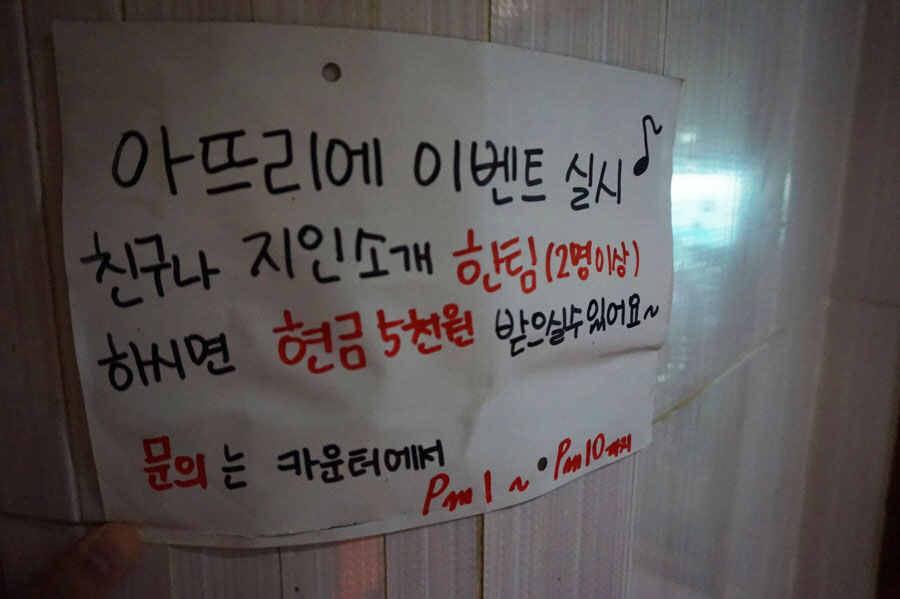 아뜨리에 이벤트 실시♪
친구나 지인소개 한팀(2명이상)
하시면 현금 5천원 받으실수있어요~
문의는 카운터에서
Pm 1 ~ Pm 10까지